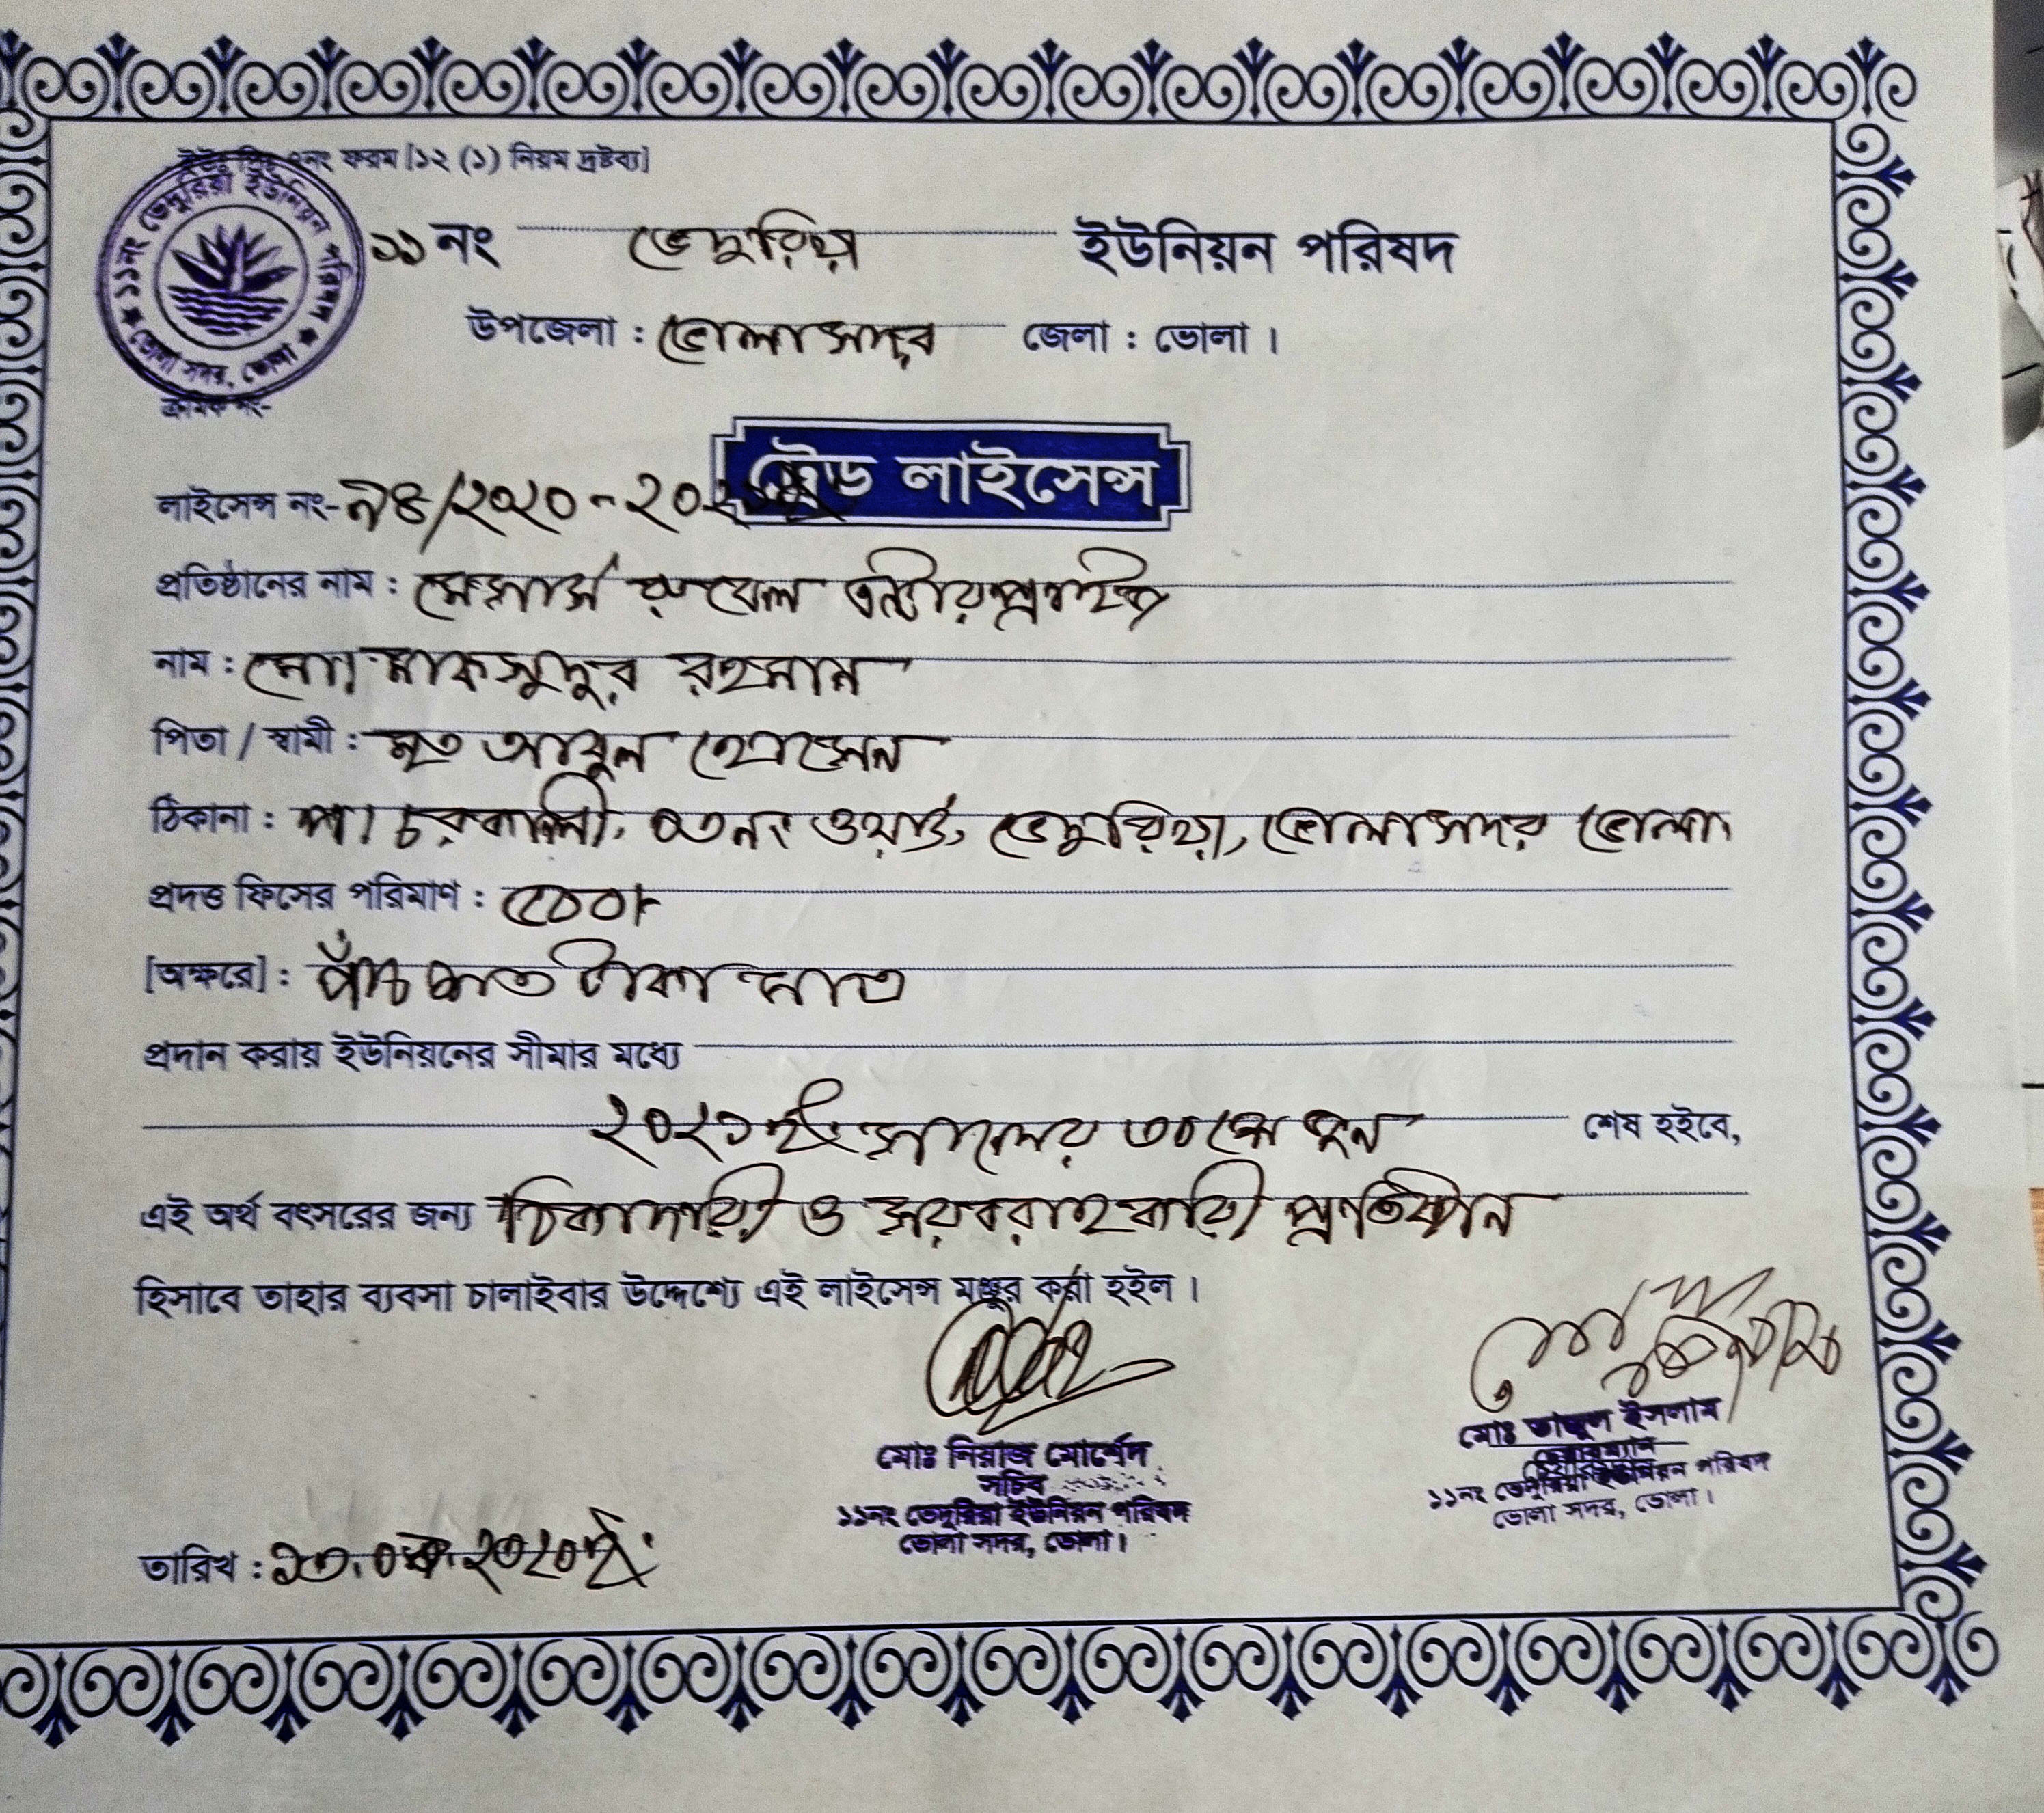 ইউঃ পিঃ ৭নং ফরম [১২ (১) নিয়ম দ্রষ্টব্য]
১১নং ভেদুরিয়া ইউনিয়ন পরিষদ
ভোলা সদর, ভোলা
১১ নং ভেদুরিয়া ইউনিয়ন পরিষদ
উপজেলা : ভোলা সদর জেলা : ভোলা ।
ক্রমিক নং-
ট্রেড লাইসেন্স
লাইসেন্স নং- /২০২০-২০২১
প্রতিষ্ঠানের নাম : মেসার্স রুবেল এন্টারপ্রাইজ
নাম : মোঃ মাকসুদুর রহমান
পিতা / স্বামী : মৃত আবুল হোসেন
ঠিকানা : পাঃ চরকালী, ০৩নং ওয়ার্ড, ভেদুরিয়া, ভোলা সদর ভোলা।
প্রদত্ত ফিসের পরিমাণ : ৫০০/-
[অক্ষরে] : পাঁচ শত টাকা মাত্র
প্রদান করায় ইউনিয়নের সীমার মধ্যে
২০২১ইং সালের ৩০ শে জুন শেষ হইবে,
এই অর্থ বৎসরের জন্য ঠিকাদারী ও সরবরাহকারী প্রতিষ্ঠান
হিসাবে তাহার ব্যবসা চালাইবার উদ্দেশ্যে এই লাইসেন্স মঞ্জুর করা হইল ।
মোঃ নিয়াজ মোর্শেদ
সচিব
১১নং ভেদুরিয়া ইউনিয়ন পরিষদ
ভোলা সদর, ভোলা।
মোঃ তাজুল ইসলাম
চেয়ারম্যান
১১নং ভেদুরিয়া ইউনিয়ন পরিষদ
ভোলা সদর, ভোলা।
তারিখ :